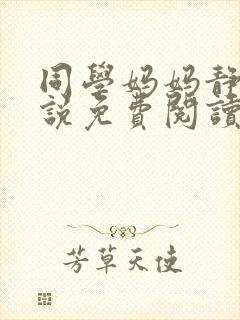 同學媽媽靜
說免費閱讀
芳草天使